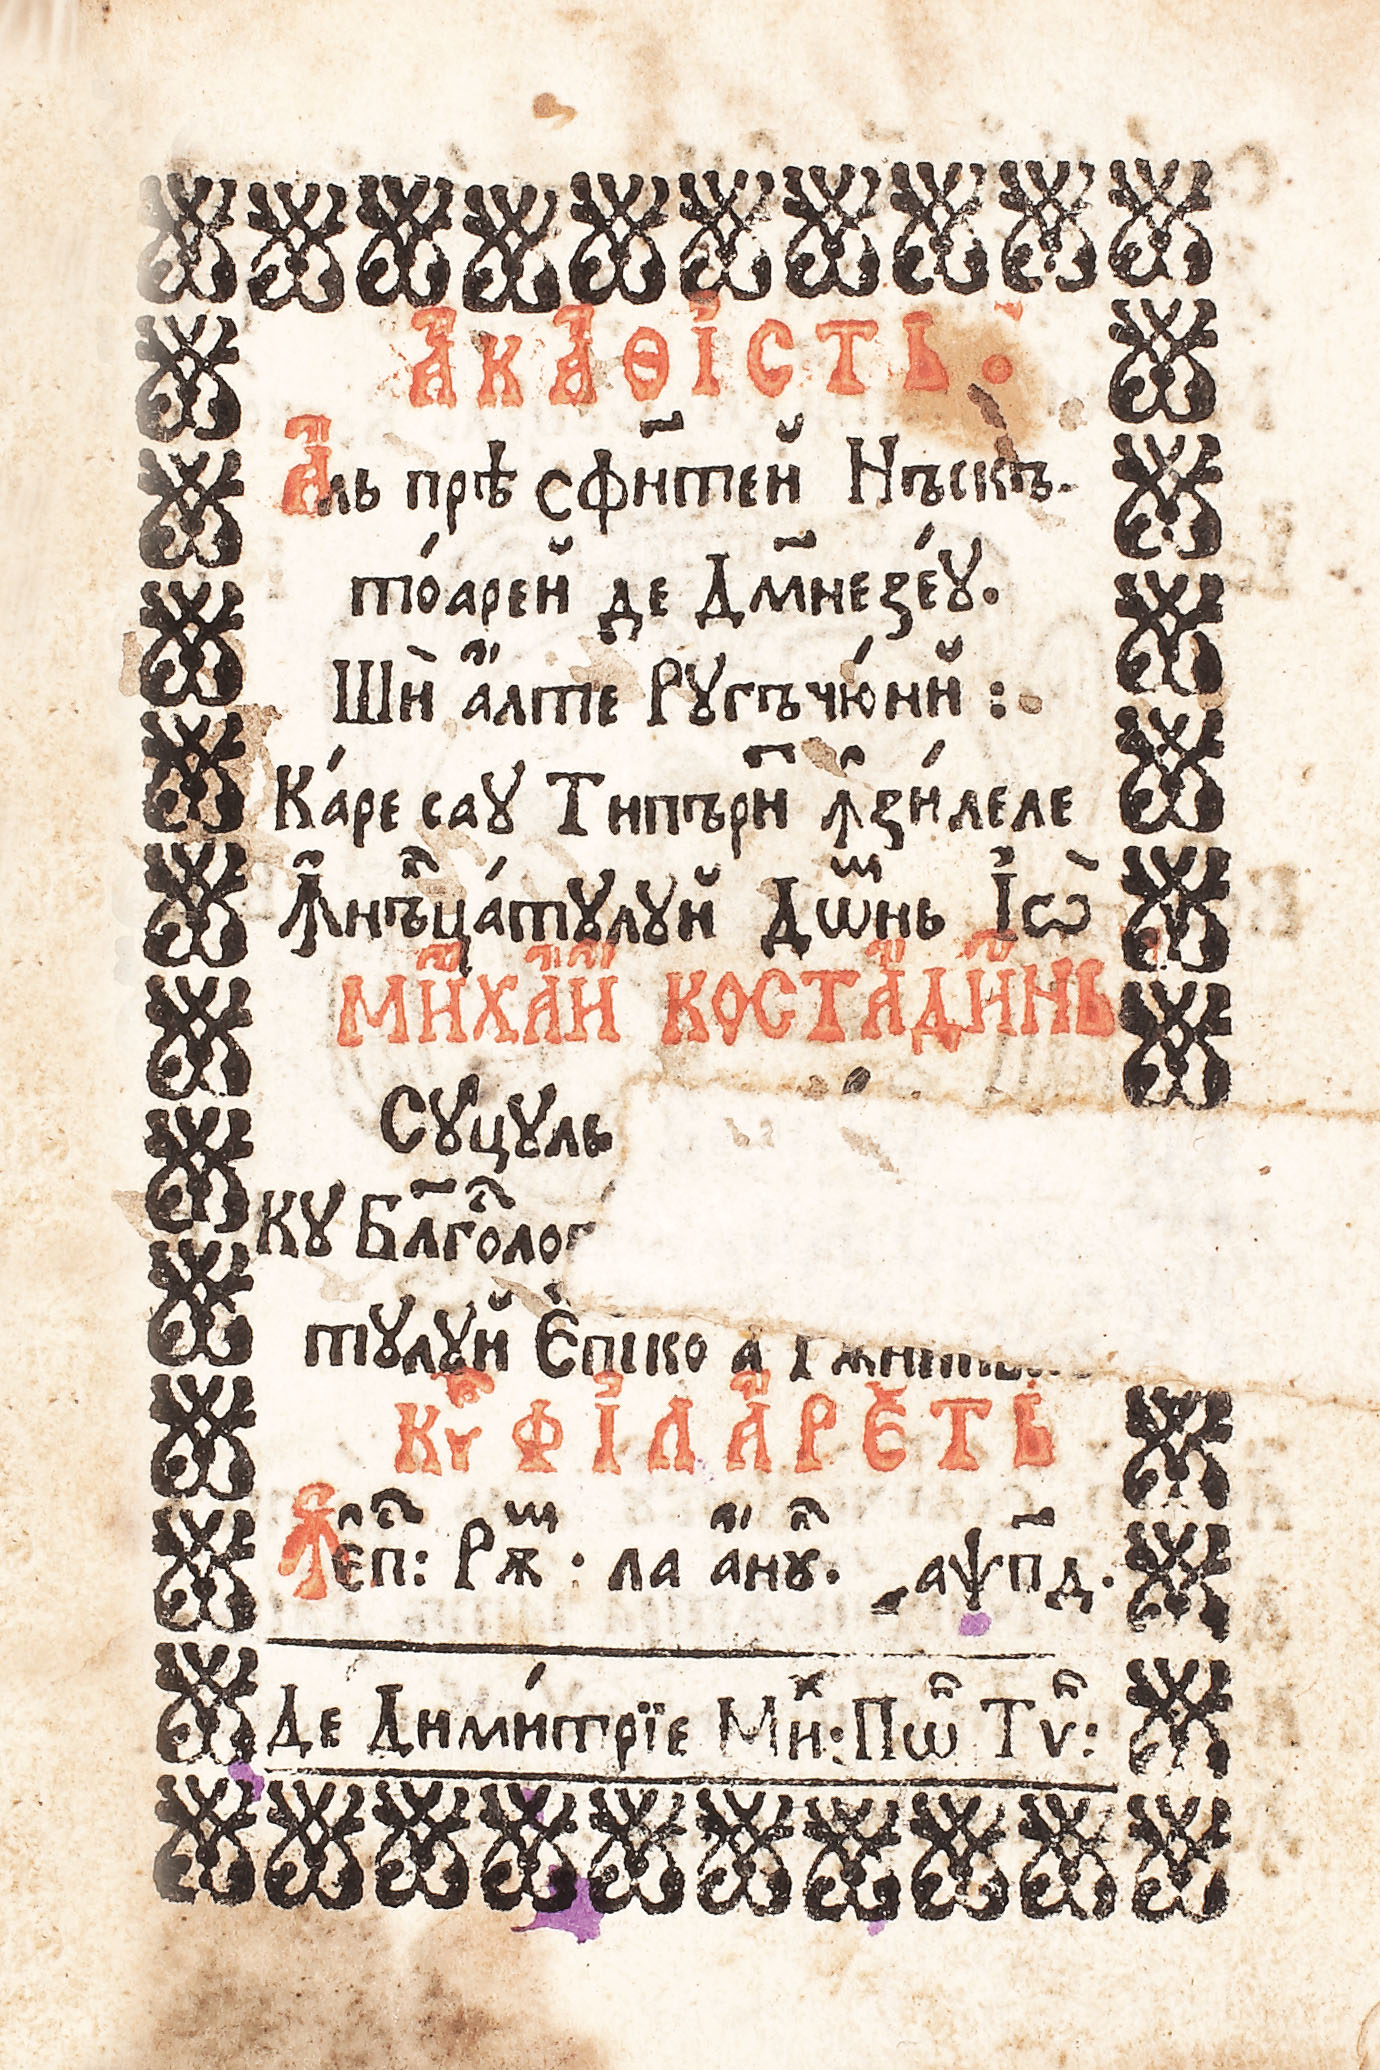 А҆КА҆ѲІ҆СТЬ.
А҆ль прѣ сфн҃тей Нъскъ-
то́арей де Дм҃незе́ꙋ.
Шѝ а҆́лте Рꙋгъчю́ний:
Ка́ре саꙋ Типъри́т ꙟ҆зи́леле
Ꙟ҆нъⷧ҇ца́тꙋлꙋй Дѡⷨнь І҆ѡ̀
МИ҆ХА҆́И҆ КОСТА҆ДИ҆НЬ
Сꙋцꙋль
кꙋ Бл҃гⷭ҇о
тꙋлꙋй Є҆піко а
Кѵⷬ҇ ФІ҆ЛА҆РЕ́ТЬ
Ꙟ҆ є҆пⷭ҇: Рѫⷨ · ла а҆́нꙋⷧ҇. ҂аѱп҃д.
Де Димі́трїе Миⷯ: Пѡⷭ҇ Тѵⷭ҇: